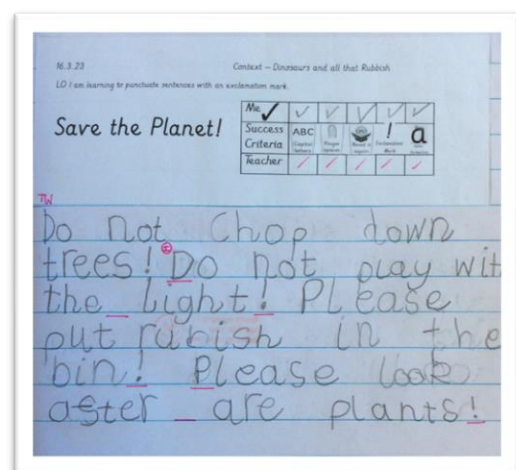 16.3.23 Context – Dinosaurs and all that Rubbish
LO I am learning to punctuate sentences with an exclamation mark.
Save the Planet!
Me ✓ ✓ ✓ ✓ ✓ ✓
Success Criteria ABC Capital letters Finger spaces Read it again ! Exclamation Mark a
Teacher / / / / /
TW
Do not Chop down
trees! Do not play wit
the light! Please
put rubish in the
bin! Please look
aster are plants!